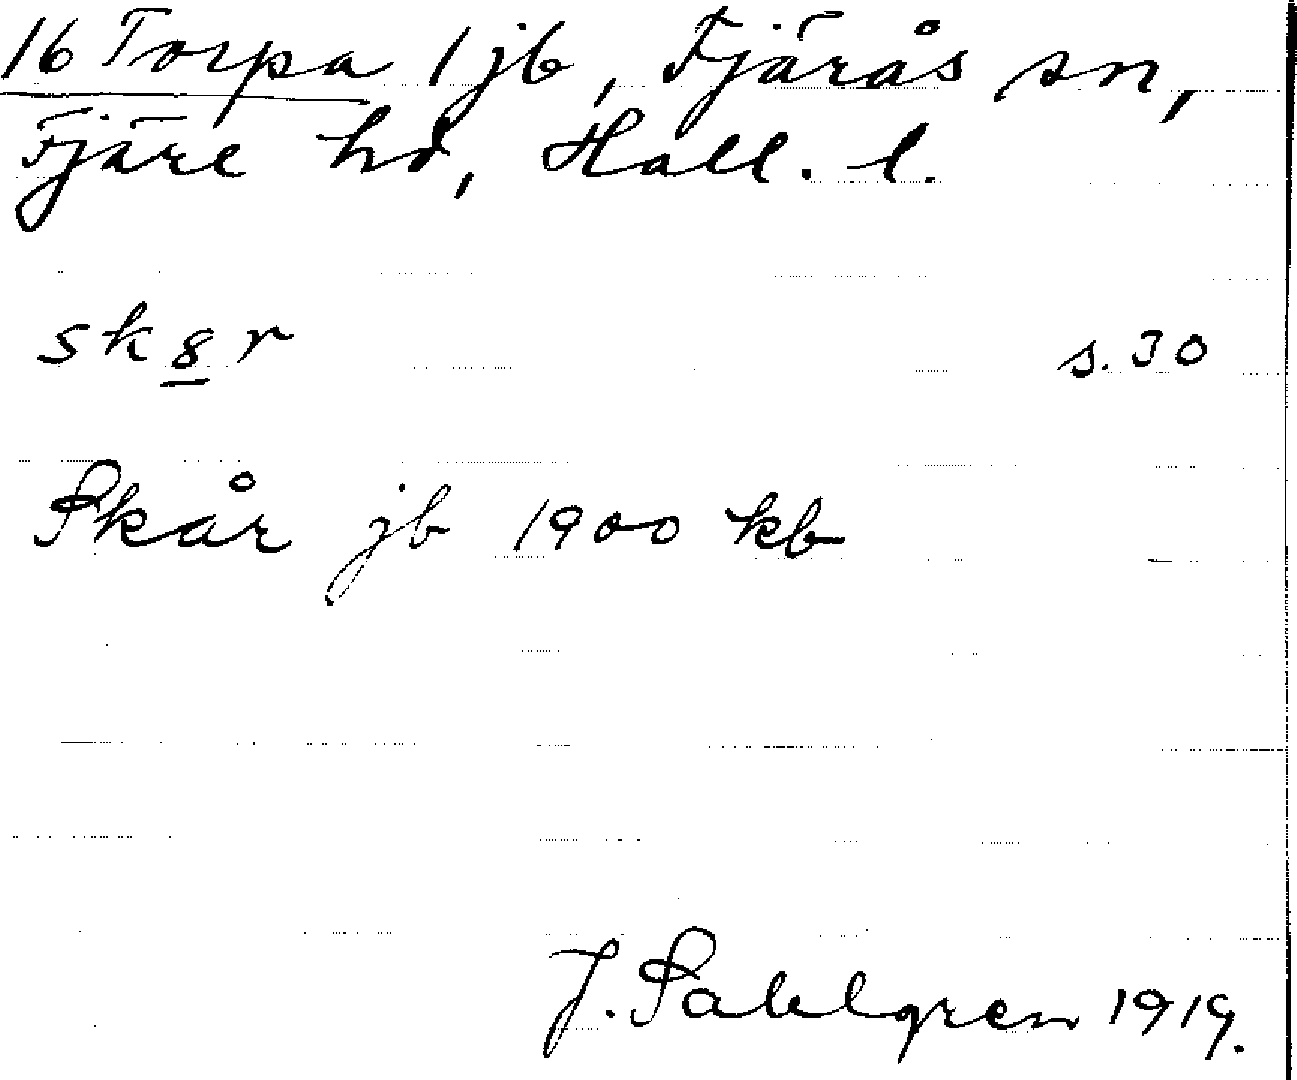 16 Torpa 1 jb, Fjärås sn,
Fjäre hd, Hall. l.
sk8r s. 30
Skår jb 1900 kb
J. Sahlgren 1919.